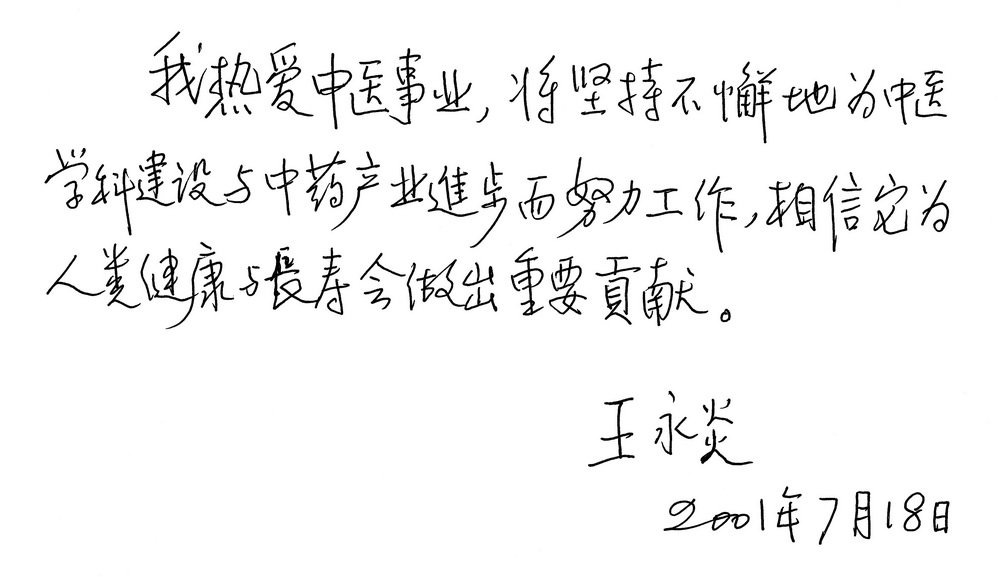 我热爱中医事业，将坚持不懈地为中医
学科建设与中药产业進步而努力工作，相信它为
人类健康与長寿会做出重要貢献。
王永炎
2001年7月18日